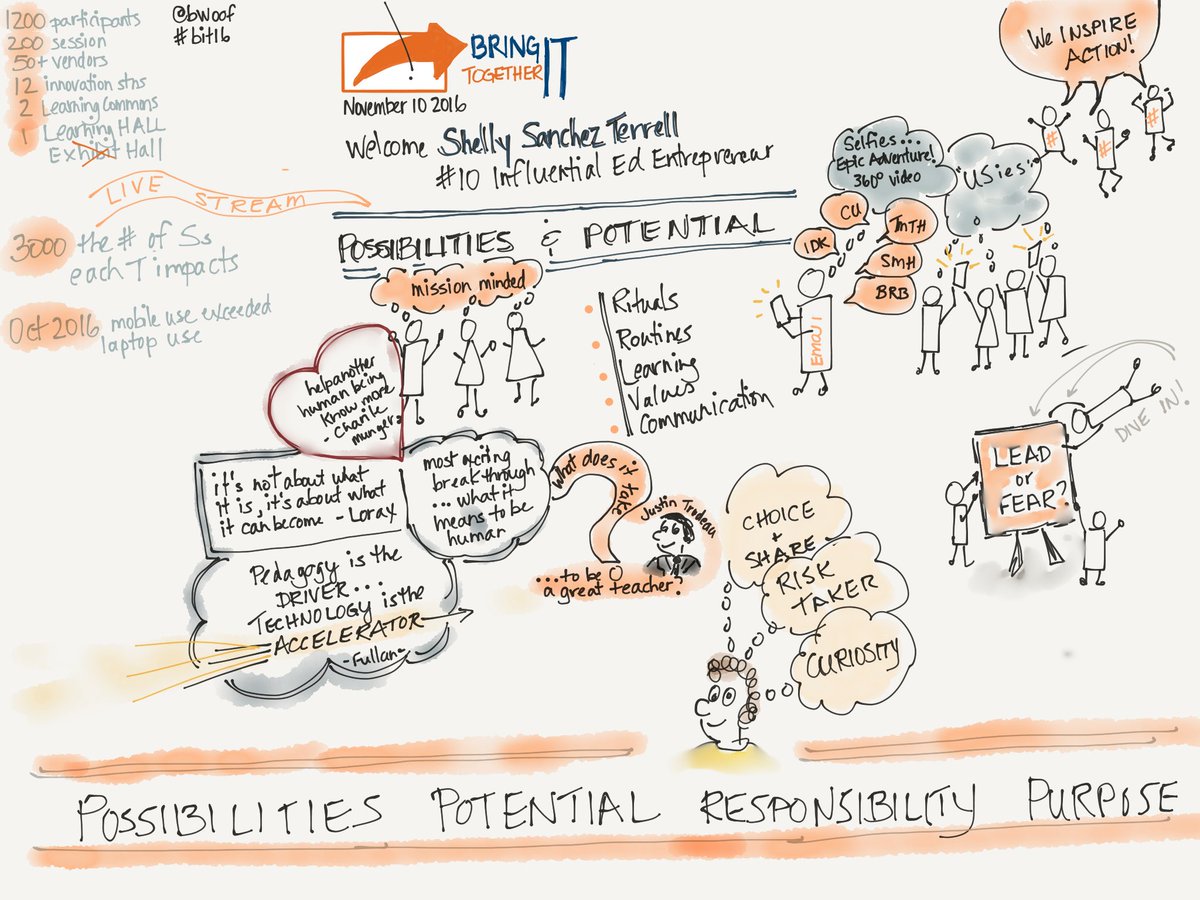 1200 participants
200 session
50+ vendors
12 innovation stns
2 Learning Commons
1 Learning HALL
Exhibit Hall
@bwoof
#bit16
BRING IT
TOGETHER
November 10 2016
Welcome Shelly Sanchez Terrell
#10 Influential Ed Entrepreneur
LIVE
STREAM
3000 the # of Ss
each T impacts
Oct 2016 mobile use exceeded
laptop use
POSSIBILITIES & POTENTIAL
mission minded
Rituals
Routines
Learning
Values
Communication
Selfies...
Epic Adventure!
360° video
"USies"
CU
IDK
TMTH
SMH
BRB
Email
We INSPIRE
ACTION!
#
#
#
LEAD
or
FEAR?
DIVE IN!
help another
human being
know more
- Charlie
munger
it's not about what
it is, it's about what
it can become - Lorax
most exciting
breakthrough
...what it
means to be
human
Pedagogy is the
DRIVER...
TECHNOLOGY is the
ACCELERATOR
-Fullan-
What does it take
...to be
a great teacher?
Justin Trudeau
CHOICE
+
SHARE
RISK
TAKER
CURIOSITY
POSSIBILITIES POTENTIAL RESPONSIBILITY PURPOSE